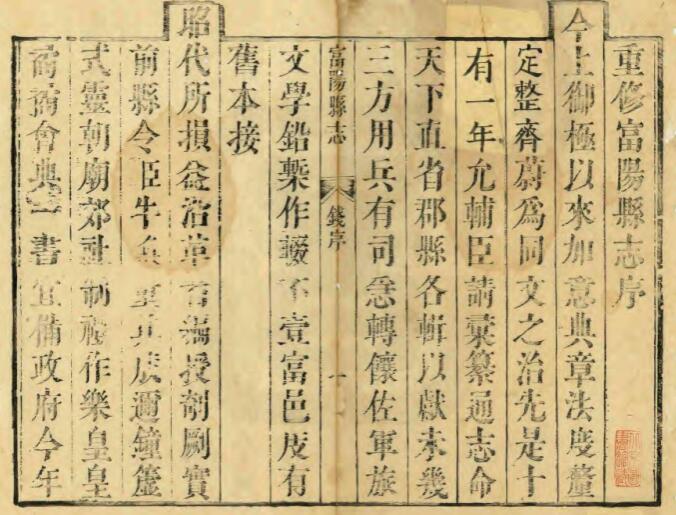 重修富陽縣志序
今上御極以來加意典章法度釐
定整齊蔚為同文之治先是十
有一年允輔臣請彙纂通志命
天下直省郡縣各輯以獻未幾
三方用兵有司急轉饟佐軍旅
富陽縣志 錢序 一
文學鉛槧作輟不壹富邑庋有
舊本接
昭代所損益沿革編授剞劂實
前縣令臣牛奐其成邇鐘簴
式靈朝廟郊社制禮作樂皇皇
矞矞會典一書宜備政府今年